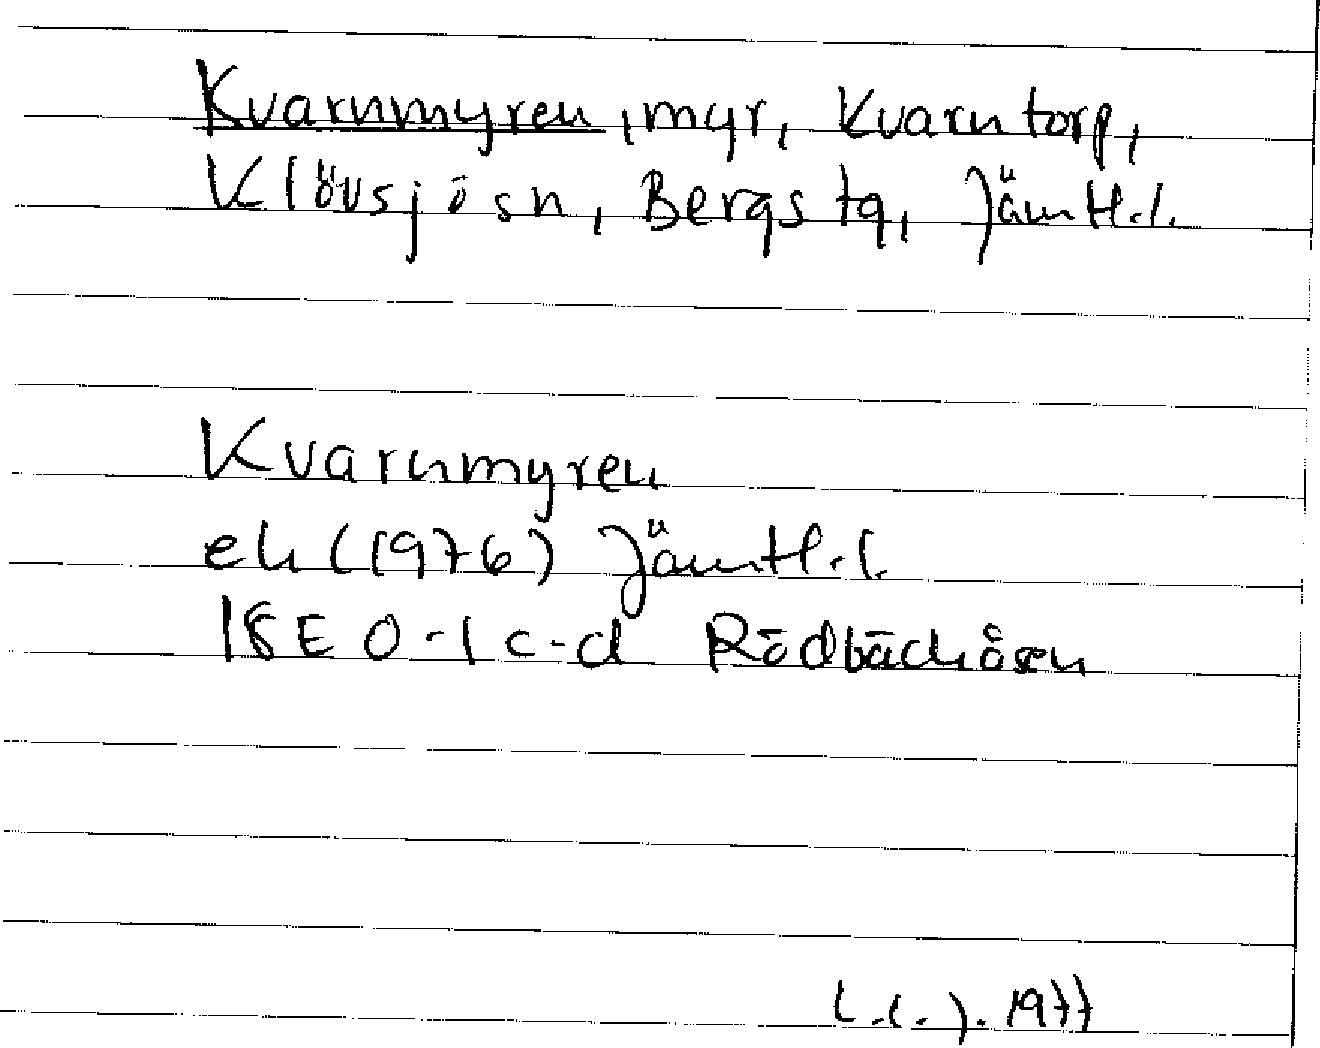 Kvarnmyren, myr, Kvarntorp,
Klövsjö sn, Bergs tg, Jämtl.l.
Kvarnmyren
ek (1976) Jämtl.l.
18E 0-1 c-d Rödbäckåsen
L.L.J. 1977